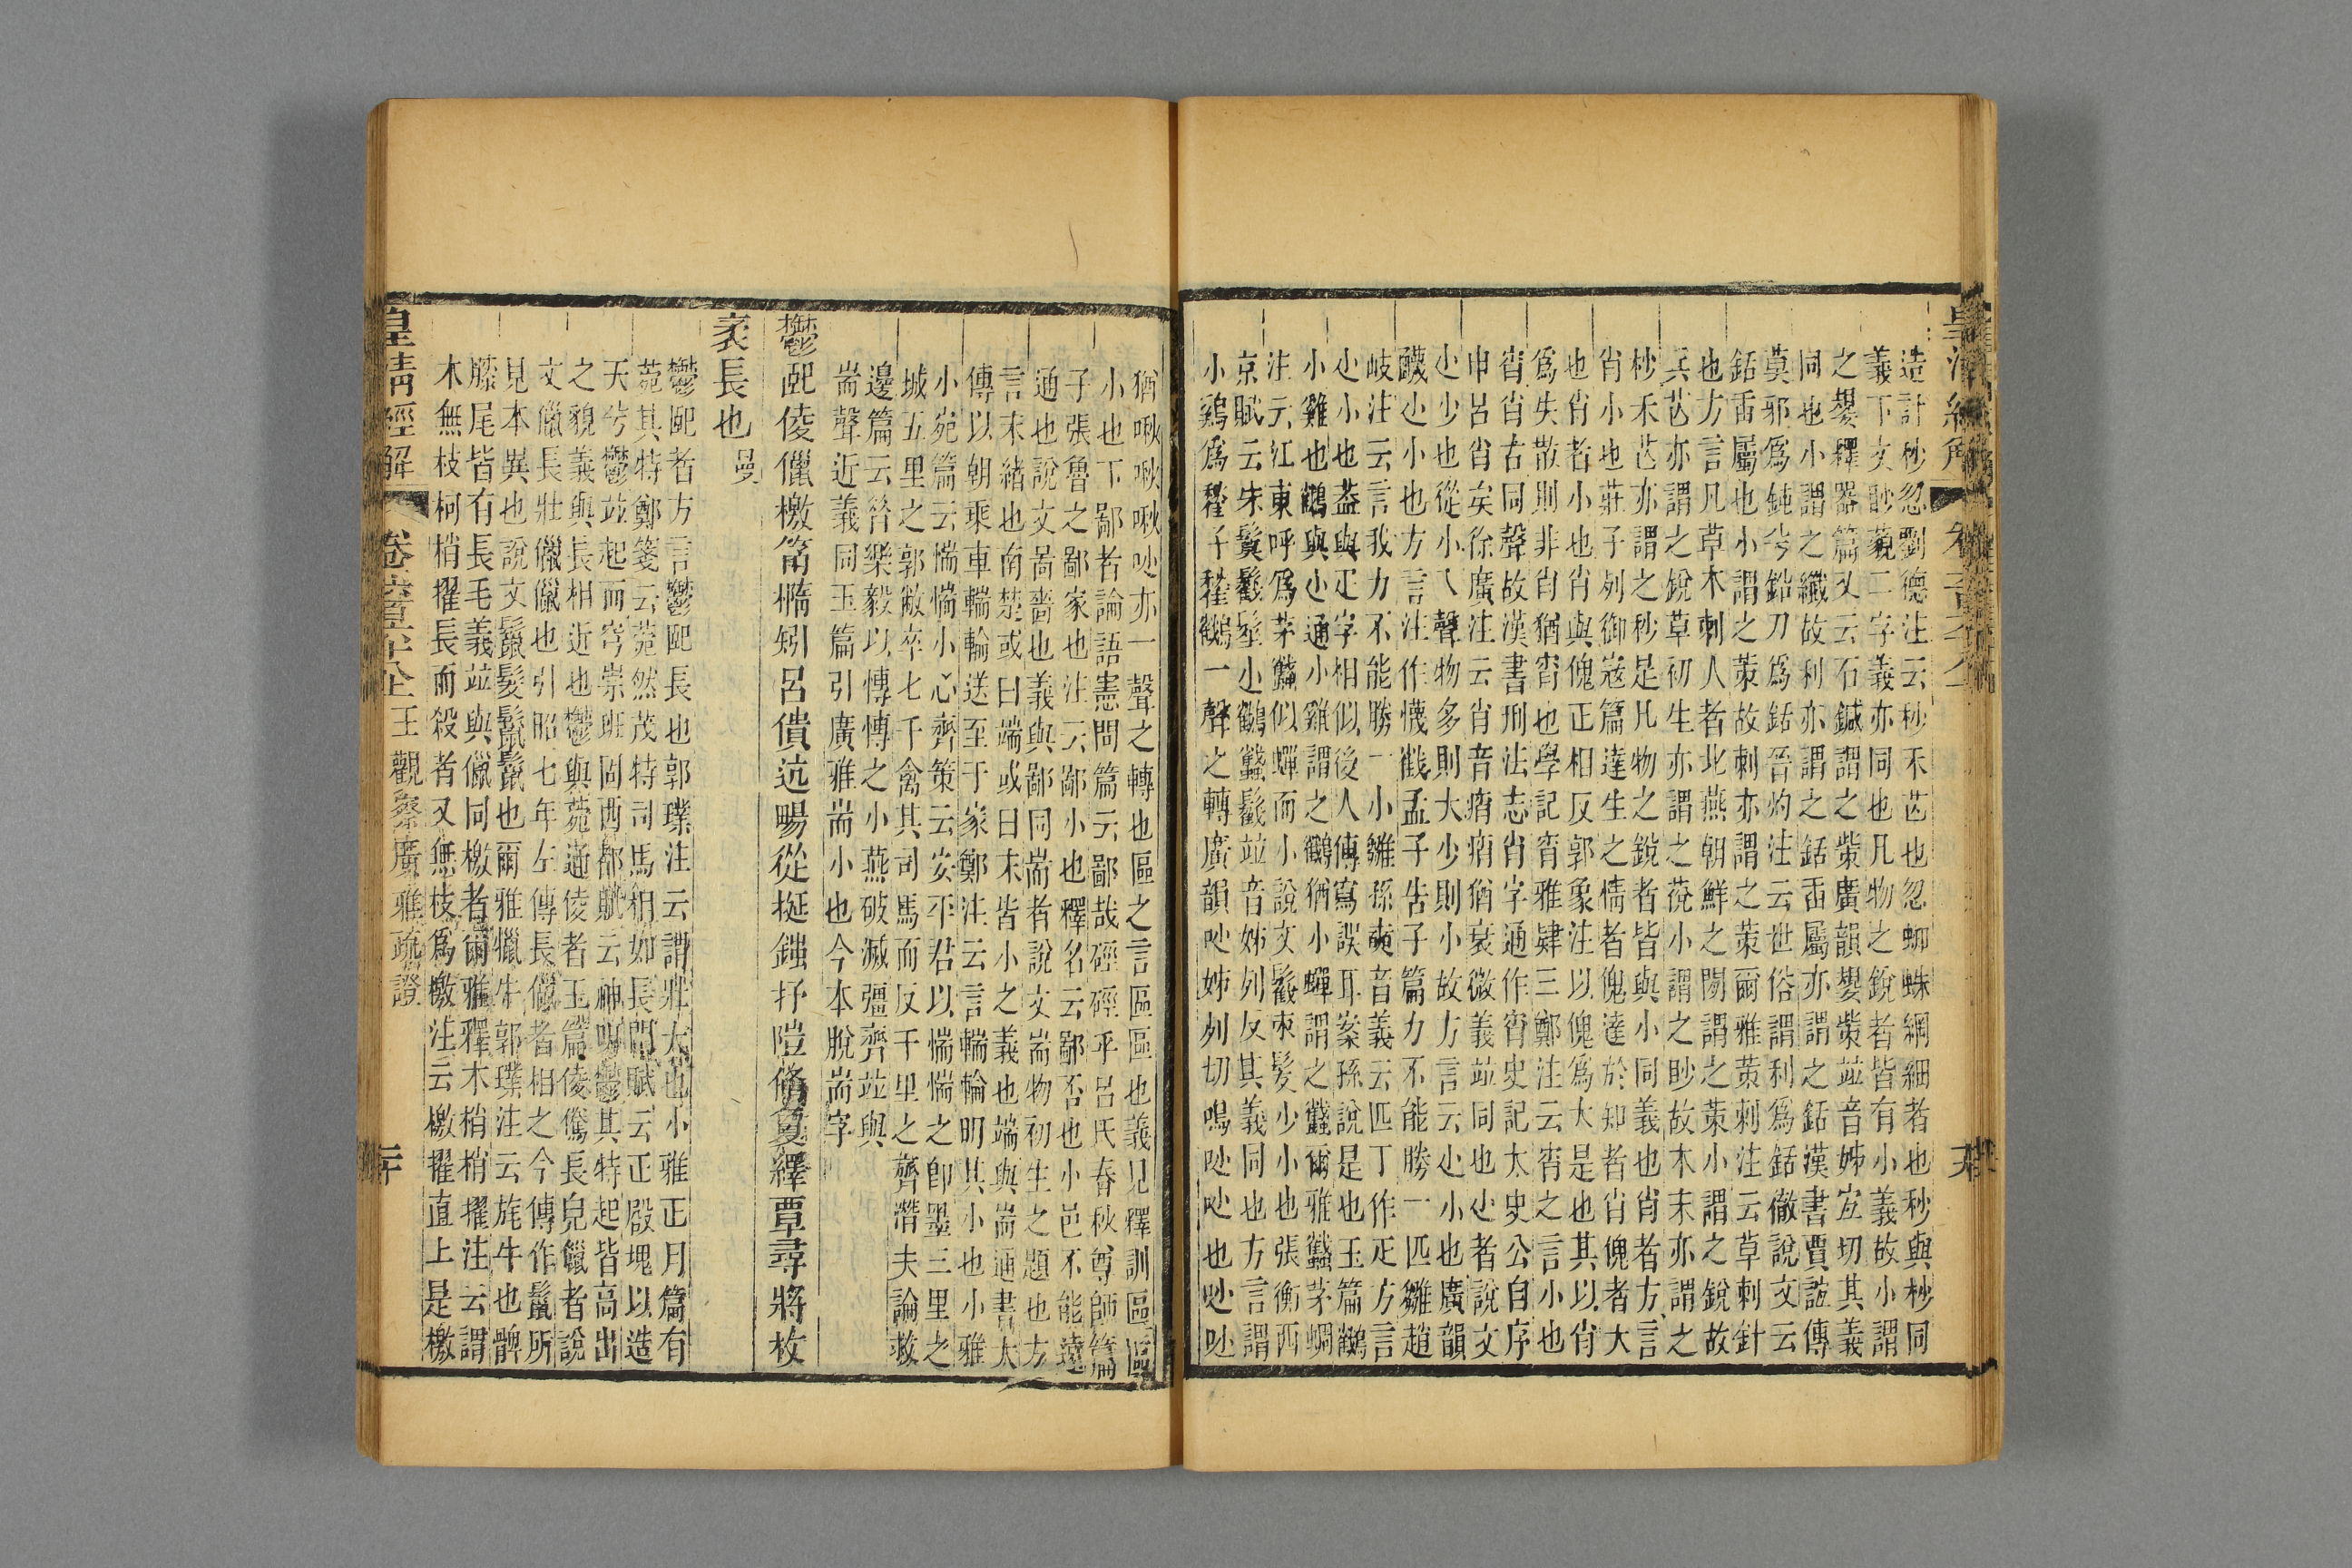 造計秒忽劉德注云秒禾芒也忽蜘蛛網細者也秒與杪同
義下文眇藐二字義亦同也凡物之銳者皆有小義故小謂
之嫢釋器篇又云石鍼謂之策廣韻嫢策並音姊宜切其義
同也小謂之纖故利亦謂之銛臿屬亦謂之銛漢書賈誼傳
莫邪爲鈍兮鉛刀爲銛晉灼注云世俗謂利爲銛徹說文云
銛臿屬也小謂之萊故刺亦謂之萊爾雅萊刺注云草刺針
也方言凡草木刺人者北燕朝鮮之閒謂之萊小謂之銳故
兵芒亦謂之銳草初生亦謂之蓩小謂之眇故木末亦謂之
杪禾芒亦謂之秒是凡物之銳者皆與小同義也肖者方言
肖小也莊子列御寇篇達生之情者傀達於知者肖傀者大
也肖者小也肖與傀正相反郭象注以傀爲大是也其以肖
爲失散則非肖猶宵也學記宵雅肄三鄭注云宵之言小也
宵肖右同聲故漢書刑法志肖字通作宵史記太史公自序
申呂肖矣徐廣注云肖音痟痟猶衰微義並同也尐者說文
尐少也從小乀聲物多則大少則小故方言云尐小也廣韻
䵳尐小也方言注作懱㦰孟子告子篇力不能勝一匹雛趙
岐注云言我力不能勝一小雛孫奭音義云匹丁作疋方言
尐小也蓋與疋字相似後人傳寫誤耳案孫說是也玉篇鷦
小雞也鷦與尐通小雞謂之鷦猶小蟬謂之蠽爾雅蠽茅蜩
注云江東呼爲茅蠽似蟬而小說文䰖束髮少小也張衡西
京賦云朱鬕䰖髽小鷦蠽䰖並音姊列反其義同也方言謂
小雞爲䅜子䅜鷦一聲之轉廣韻吵姊列切鳴吵吵也吵吵
猶啾啾啾吵亦一聲之轉也區之言區區也義見釋訓區區
小也下鄙者論語憲問篇云鄙哉硜硜乎呂氏春秋尊師篇
子張魯之鄙家也注云鄙小也釋名云鄙否也小邑不能遠
通也說文啚嗇也義與鄙同耑者說文耑物初生之題也方
言末緒也南楚或曰端或曰末皆小之義也端與耑通書大
傳以朝乘車輲輪送至于家鄭注云言輲輪明其小也小雅
小宛篇云惴惴小心齊策云安平君以惴惴之卽墨三里之
城五里之郭敝卒七千禽其司馬而反千里之齊潛夫論救
邊篇云昝樂毅以慱慱之小燕破滅彊齊並與
耑聲近義同玉篇引廣雅耑小也今本脫耑字
鬱㔻倰儠檄䈰橢矧呂僓远畼從挻䥐抒隑脩敻繹覃尋將枚
袤長也曼
鬱㔻者方言鬱㔻長也郭璞注云謂壯大也小雅正月篇有
菀其特鄭箋云菀然茂特司馬相如長門賦云正殿塊以造
天兮鬱並起而穹崇班固西都賦云神明鬱其特起皆高出
之貌義與長相近也鬱與菀通倰者玉篇倰㑼長皃儠者說
文儠長壯儠儠也引昭七年左傳長儠者相之今傳作鬣所
見本異也說文鬣髮鬣鬣也爾雅犣牛郭璞注云旄牛也髀
膝尾皆有長毛義並與儠同檄者爾雅釋木梢梢擢注云謂
木無枝柯梢擢長而殺者又無枝爲檄注云檄擢直上是檄
皇清經解　王觀察廣雅疏證